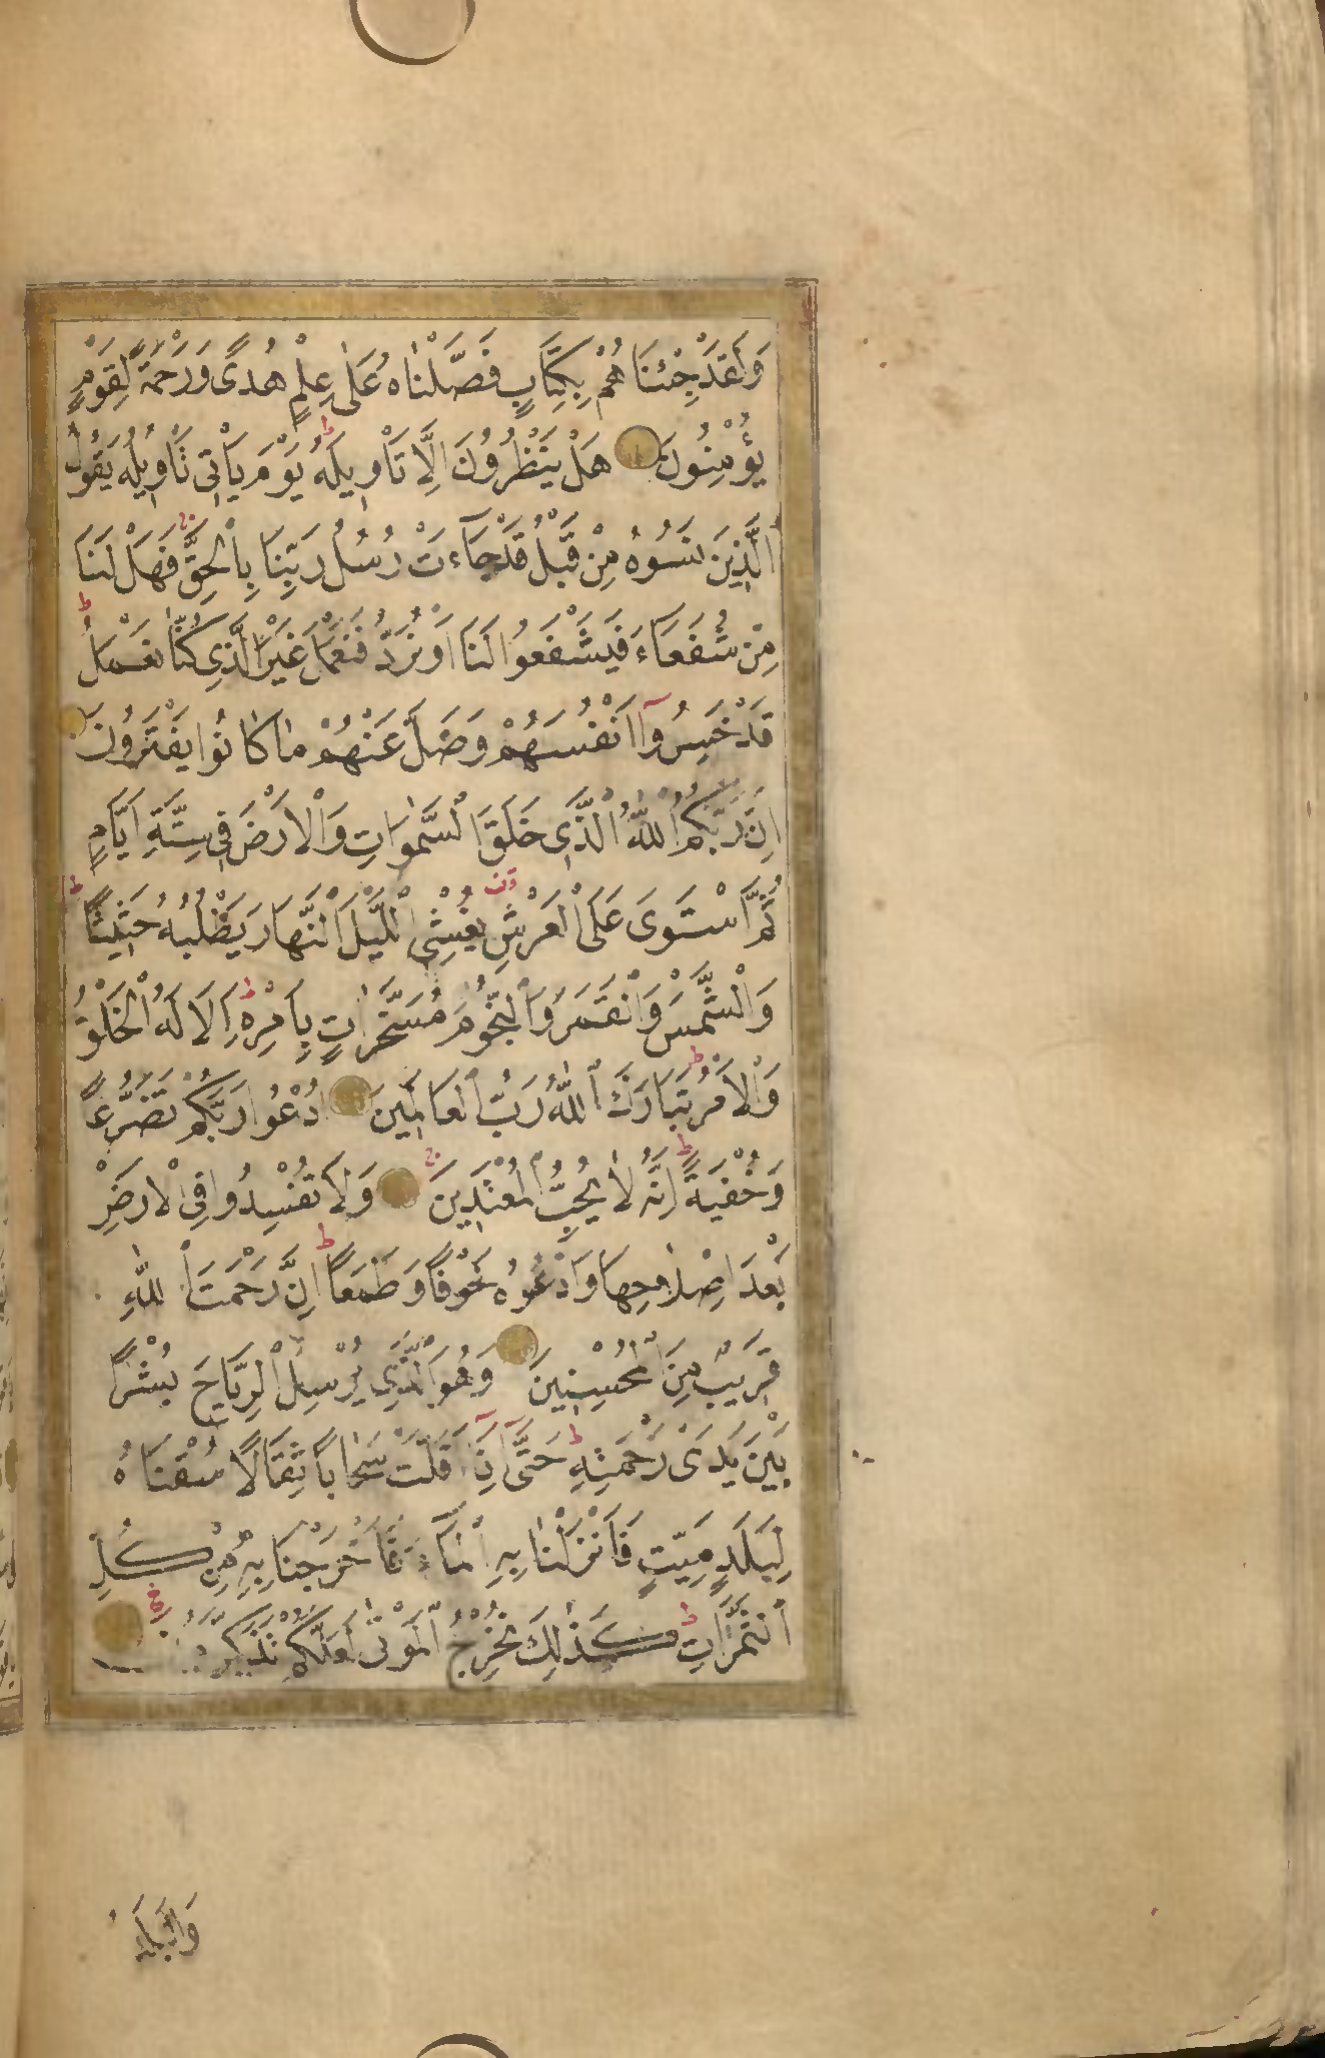 وَلَقَدْ جِئْنَاهُمْ بِكِتَابٍ فَصَّلْنَاهُ عَلٰى عِلْمٍ هُدًى وَرَحْمَةً لِقَوْمٍ
يُؤْمِنُونَ هَلْ يَنْظُرُونَ اِلَّا تَأْوِيلَهُ يَوْمَ يَأْتِى تَأْوِيلُهُ يَقُولُ
الَّذِينَ نَسُوهُ مِنْ قَبْلُ قَدْ جَآءَتْ رُسُلُ رَبِّنَا بِالْحَقِّ فَهَلْ لَنَا
مِنْ شُفَعَآءَ فَيَشْفَعُوا لَنَا اَوْ نُرَدُّ فَنَعْمَلَ غَيْرَ الَّذِى كُنَّا نَعْمَلُ
قَدْ خَسِرُوآ اَنْفُسَهُمْ وَضَلَّ عَنْهُمْ مَا كَانُوا يَفْتَرُونَ
اِنَّ رَبَّكُمُ اللّٰهُ الَّذِى خَلَقَ السَّمٰوَاتِ وَالْاَرْضَ فِى سِتَّةِ اَيَّامٍ
ثُمَّ اسْتَوَى عَلَى الْعَرْشِ يُغْشِى الَّيْلَ النَّهَارَ يَطْلُبُهُ حَثِيثًا
وَالشَّمْسَ وَالْقَمَرَ وَالنُّجُومَ مُسَخَّرَاتٍ بِاَمْرِهِ اَلَا لَهُ الْخَلْقُ
وَالْاَمْرُ تَبَارَكَ اللّٰهُ رَبُّ الْعَالَمِينَ اُدْعُوا رَبَّكُمْ تَضَرُّعًا
وَخُفْيَةً اِنَّهُ لَا يُحِبُّ الْمُعْتَدِينَ وَلَا تُفْسِدُوا فِى الْاَرْضِ
بَعْدَ اِصْلَاحِهَا وَادْعُوهُ خَوْفًا وَطَمَعًا اِنَّ رَحْمَتَ اللّٰهِ
قَرِيبٌ مِنَ الْمُحْسِنِينَ وَهُوَ الَّذِى يُرْسِلُ الرِّيَاحَ بُشْرًا
بَيْنَ يَدَىْ رَحْمَتِهِ حَتَّى اِذَآ اَقَلَّتْ سَحَابًا ثِقَالًا سُقْنَاهُ
لِبَلَدٍ مَيِّتٍ فَاَنْزَلْنَا بِهِ الْمَآءَ فَاَخْرَجْنَا بِهِ مِنْ كُلِّ
الثَّمَرَاتِ كَذٰلِكَ نُخْرِجُ الْمَوْتٰى لَعَلَّكُمْ تَذَكَّرُونَ
وَالْبَلَدُ